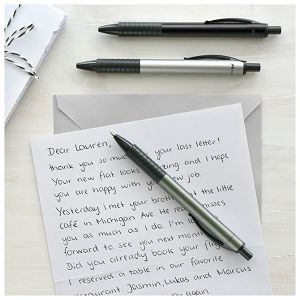 Dear Lauren,
thank you so much your last letter!
Your new flat looks zing and I hope
you are happy with y new job.
Yesterday I met your broth the little
café in Michigan Ave. He re misses
you as much as I do, I'm
forward to see you next month
Did you already book your flig
I reserved a table in our favorite
restaurant. Jasmin, Lukas and Marcus